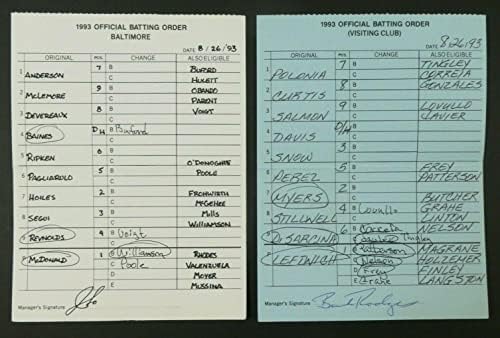 1993 OFFICIAL BATTING ORDER
BALTIMORE
DATE 8/26/93
ORIGINAL POS. CHANGE ALSO ELIGIBLE
1 ANDERSON 7 B C
BUFORD
HULETT
2 McLEMORE 9 B C
OBANDO
PARENT
3 DEVEREAUX 8 B C
VOIGT
4 BAINES DH B Buford C
5 RIPKEN 6 B C
O'DONOGHUE
6 PAGLIARULO 5 B C
POOLE
7 HOILES 2 B C
FROHWIRTH
McGEHEE
8 SEGUI 3 B C
MILLS
WILLIAMSON
9 REYNOLDS 4 B Voigt C
McDONALD 1 B Williamson
C Poole
D
E
RHODES
VALENZUELA
MOYER
MUSSINA
Manager's Signature
1993 OFFICIAL BATTING ORDER
(VISITING CLUB)
DATE 8-26-93
ORIGINAL POS. CHANGE ALSO ELIGIBLE
1 POLONIA 7 B C
TINGLEY
CORREIA
2 CURTIS 8 B C
GONZALES
3 SALMON 9 B C
LOVULLO
JAVIER
4 DAVIS D/H B C
5 SNOW 3 B C
6 PEREZ 5 B C
FREY
PATTERSON
7 MYERS 2 B C
BUTCHER
8 STILLWELL 4 B Lovullo C
GRAHE
LINTON
9 DISARCINA 6 B Correia
C Tingley
NELSON
LEFTWICH 1 B Patterson
C Nelson
D Frey
E Grahe
MAGRANE
HOLZEMER
FINLEY
LANGSTON
Manager's Signature Buck Rodgers